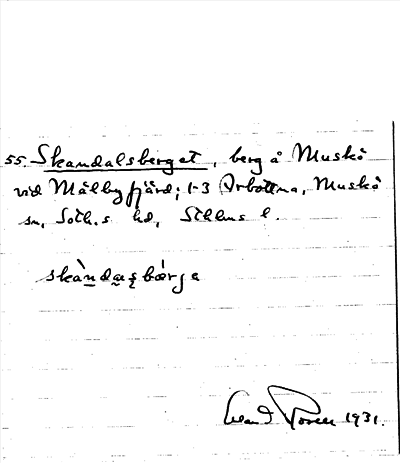 55. Skandalsberget, berg å Muskö
vid Målbyfjärd; 1-3 Arbottna, Muskö
sn, Soth.s hd, Sthlms l.
skàndaʂbǽrge
1931.